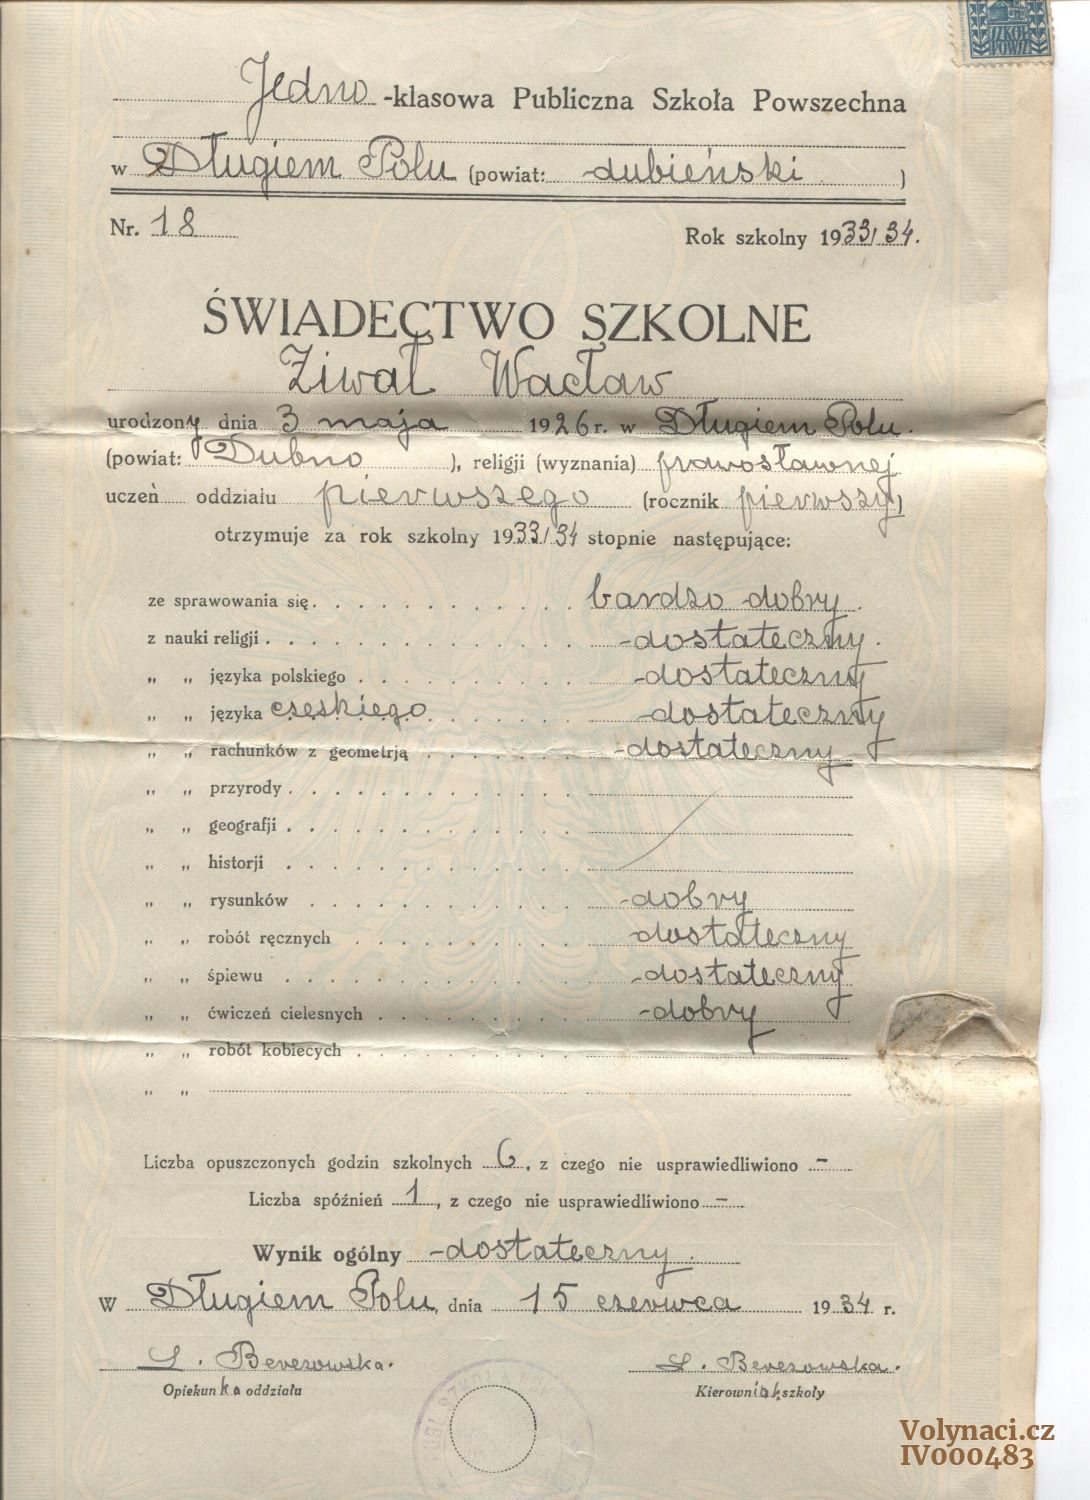 SZKOŁ
POWSZ
Jedno-klasowa Publiczna Szkoła Powszechna
w Długiem Polu (powiat: dubieński)
Nr. 18
Rok szkolny 1933/34.
ŚWIADECTWO SZKOLNE
Ziwał Wacław
urodzony dnia 3 maja 1926 r. w Długiem Polu.
(powiat: Dubno), religji (wyznania) prawosławnej
uczeń oddziału pierwszego (rocznik pierwszy)
otrzymuje za rok szkolny 1933/34 stopnie następujące:
ze sprawowania się. . . . . . . . . . . . bardzo dobry.
z nauki religji . . . . . . . . . . . . . dostateczny.
„ „ języka polskiego . . . . . . . . . . dostateczny
„ „ języka czeskiego . . . . . . dostateczny
„ „ rachunków z geometrją . . . . . . . dostateczny
„ „ przyrody . . . . . . . . . . . . .
„ „ geografji . . . . . . . . . . . . .
„ „ historji . . . . . . . . . . . . .
„ „ rysunków . . . . . . . . . . . . dobry
„ „ robót ręcznych . . . . . . . . . . dostateczny
„ „ śpiewu . . . . . . . . . . . . . dostateczny
„ „ ćwiczeń cielesnych . . . . . . . . . dobry
„ „ robót kobiecych . . . . . . . . . .
„ „
Liczba opuszczonych godzin szkolnych 6, z czego nie usprawiedliwiono -
Liczba spóźnień 1, z czego nie usprawiedliwiono -
Wynik ogólny dostateczny.
W Długiem Polu, dnia 15 czerwca 1934 r.
L. Berezowska. L. Berezowska.
Opiekunka oddziału Kierownik szkoły
Volynaci.cz
IV000483